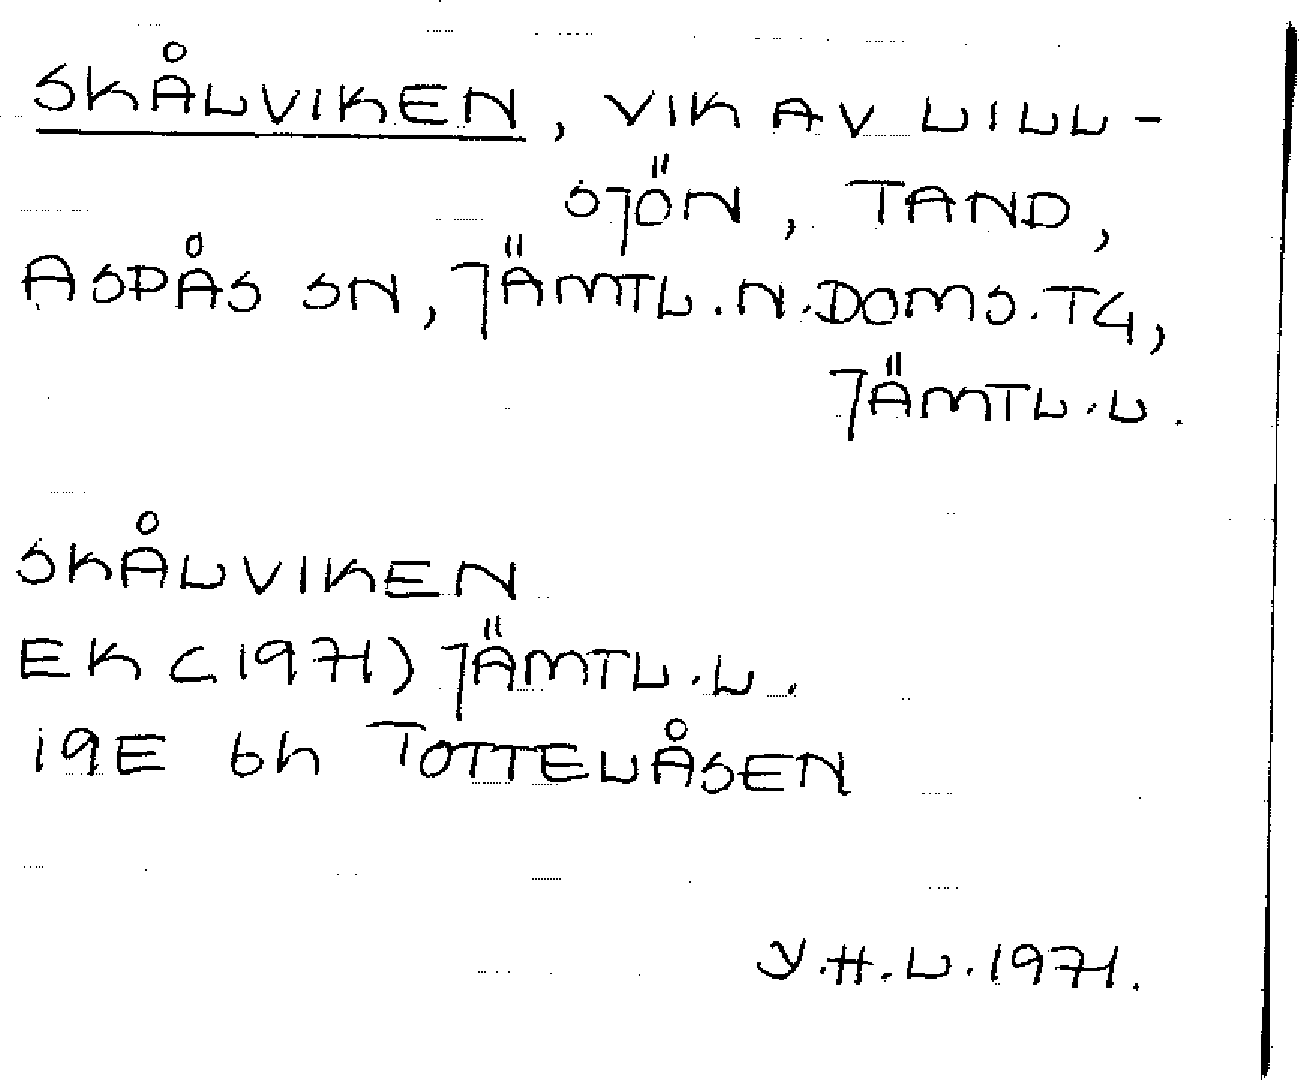 SKÅLVIKEN, VIK AV LILL-
SJÖN, TAND,
ASPÅS SN, JÄMTL.N.DOMS.TG,
JÄMTL.L.
SKÅLVIKEN
EK (1971) JÄMTL.L.
19E 6h TOTTELÅSEN
Y.H.L.1971.